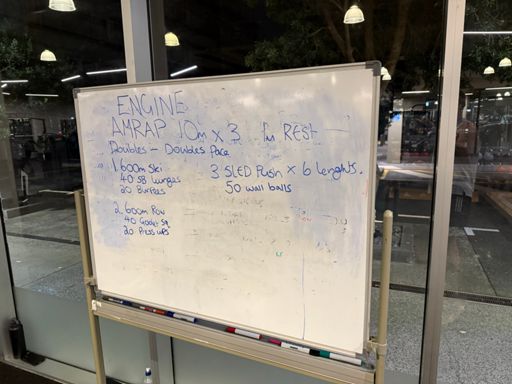 ENGINE
AMRAP 10m x 3 REST
Doubles - Doubles Pace
1. 600m Ski
40 SB Lunges
20 Burpees
2. 600m Row
40 Goblet Sq
20 Press ups
3 SLED Push x 6 Lenghts.
50 wall balls